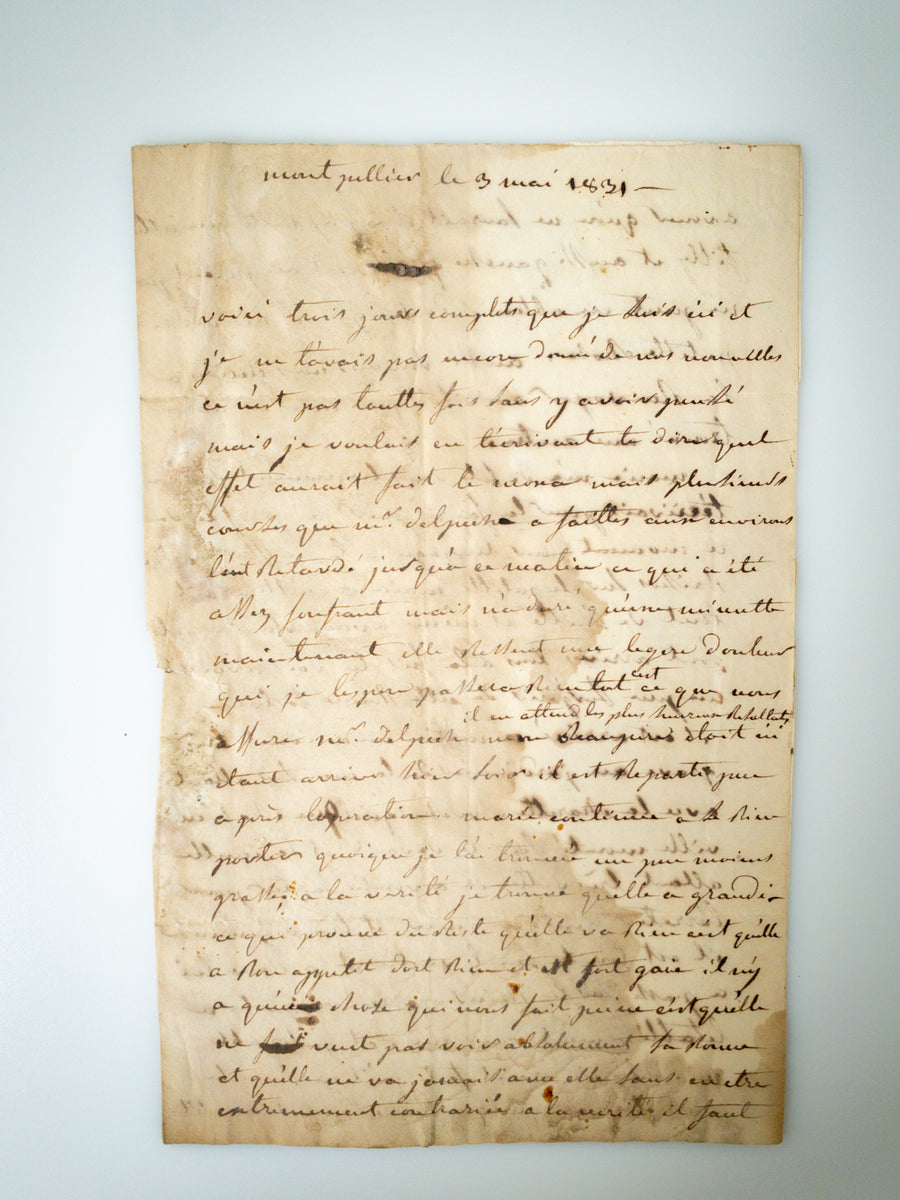 montpellier le 3 mai 1831 —
voici trois jours complets que je suis ici et
je ne t'avais pas encore donné de nos nouvelles
ce n'est pas touttes fois sans y avoir pensé
mais je voulais en t'écrivant te dire quel
effet aurait fait le mais plusieurs
courses que mr. delpech a faittes aux environs
l'ont retardé jusqu'à ce matin ce qui a été
assez soufrant mais n'a duré qu'une minutte
maintenant elle ressent une legere douleur
qui je l'espere passera bientot c'est ce que nous
assure mr. delpech il en attend les plus heureux resultats
mon beaupere étoit ici
étant arrivé hier soir il est reparti peu
après l'operation marie continue a se bien
porter quoique je l'ai trouvée un peu moins
grasse, a la verité je trouve qu'elle a grandi
ce qui prouve du reste qu'elle va bien c'est qu'elle
a bon appetit dort bien et est fort gaie il n'y
a qu'une chose qui nous fait peine c'est qu'elle
ne veut pas voir absolument sa bonne
et qu'elle ne va jamais avec elle sans en etre
extremement contrariée a la verité il faut